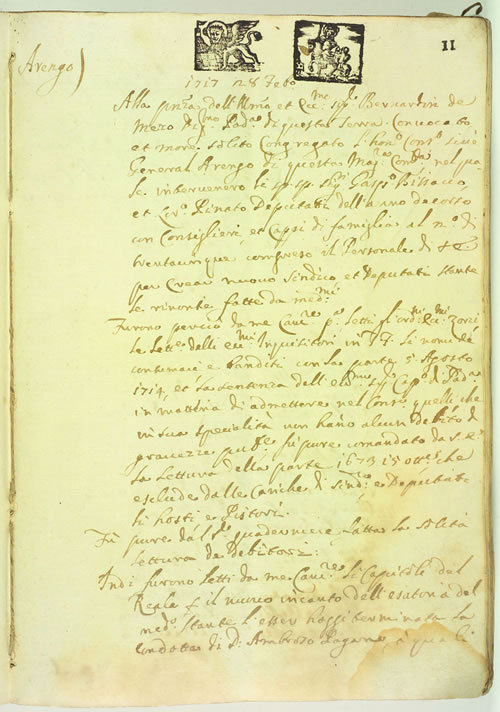 11
Arengo)
1717 28 Feb.o
Alla pnza dell'Illmo et Ecc.mo Sig.r Bernardin de
Mezo di questa Terra Convocato
et more solito Congregato l' hon.o Cons.o sive
General Arengo di questa Mag.ca Com.tà nel qua-
le intervenero li sp. sp. Sig.ri Gasp.o Bissacco,
et Pinato Deputati dell'anno decorso
con Consiglieri, et Capi di famiglia al n.o di
trentacinque compreso il Personale di
per crear nuovo Sindico et Deputati stante
le rinontie fatte da med.mi
Furono perciò da me Canc.re letti gl'ord.ni
le lett.e delli ecc.mi Inquisitori in T.F. Si
contumaci e banditi con la parte 5 Agosto
1714, et la sentenza dell' Cap.o di Pad.a
in matteria di admettere nel Cons.o quelli, che
in sua specialità non hano alcun debito di
gravezze pub.e fu pure comandato da S.E.
la Lettura della parte 1673 15 che
esclude dalle Cariche di Sind.co e Deputati
li hosti e Pistori.
Fu pure dal quaderniere fatta la solita
lettura de Debitori:
Indi furono letti da me Canc.re li Capitoli del
Reale il nuovo incanto dell'esatoria del
med.o stante l'esser hoggi terminata la
condotta di D. Ambroso Pagan, i quali